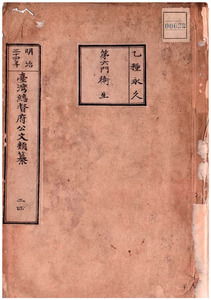 乙種永久
第六門衛生
明治
三十四年
臺灣總督府公文類纂
二四